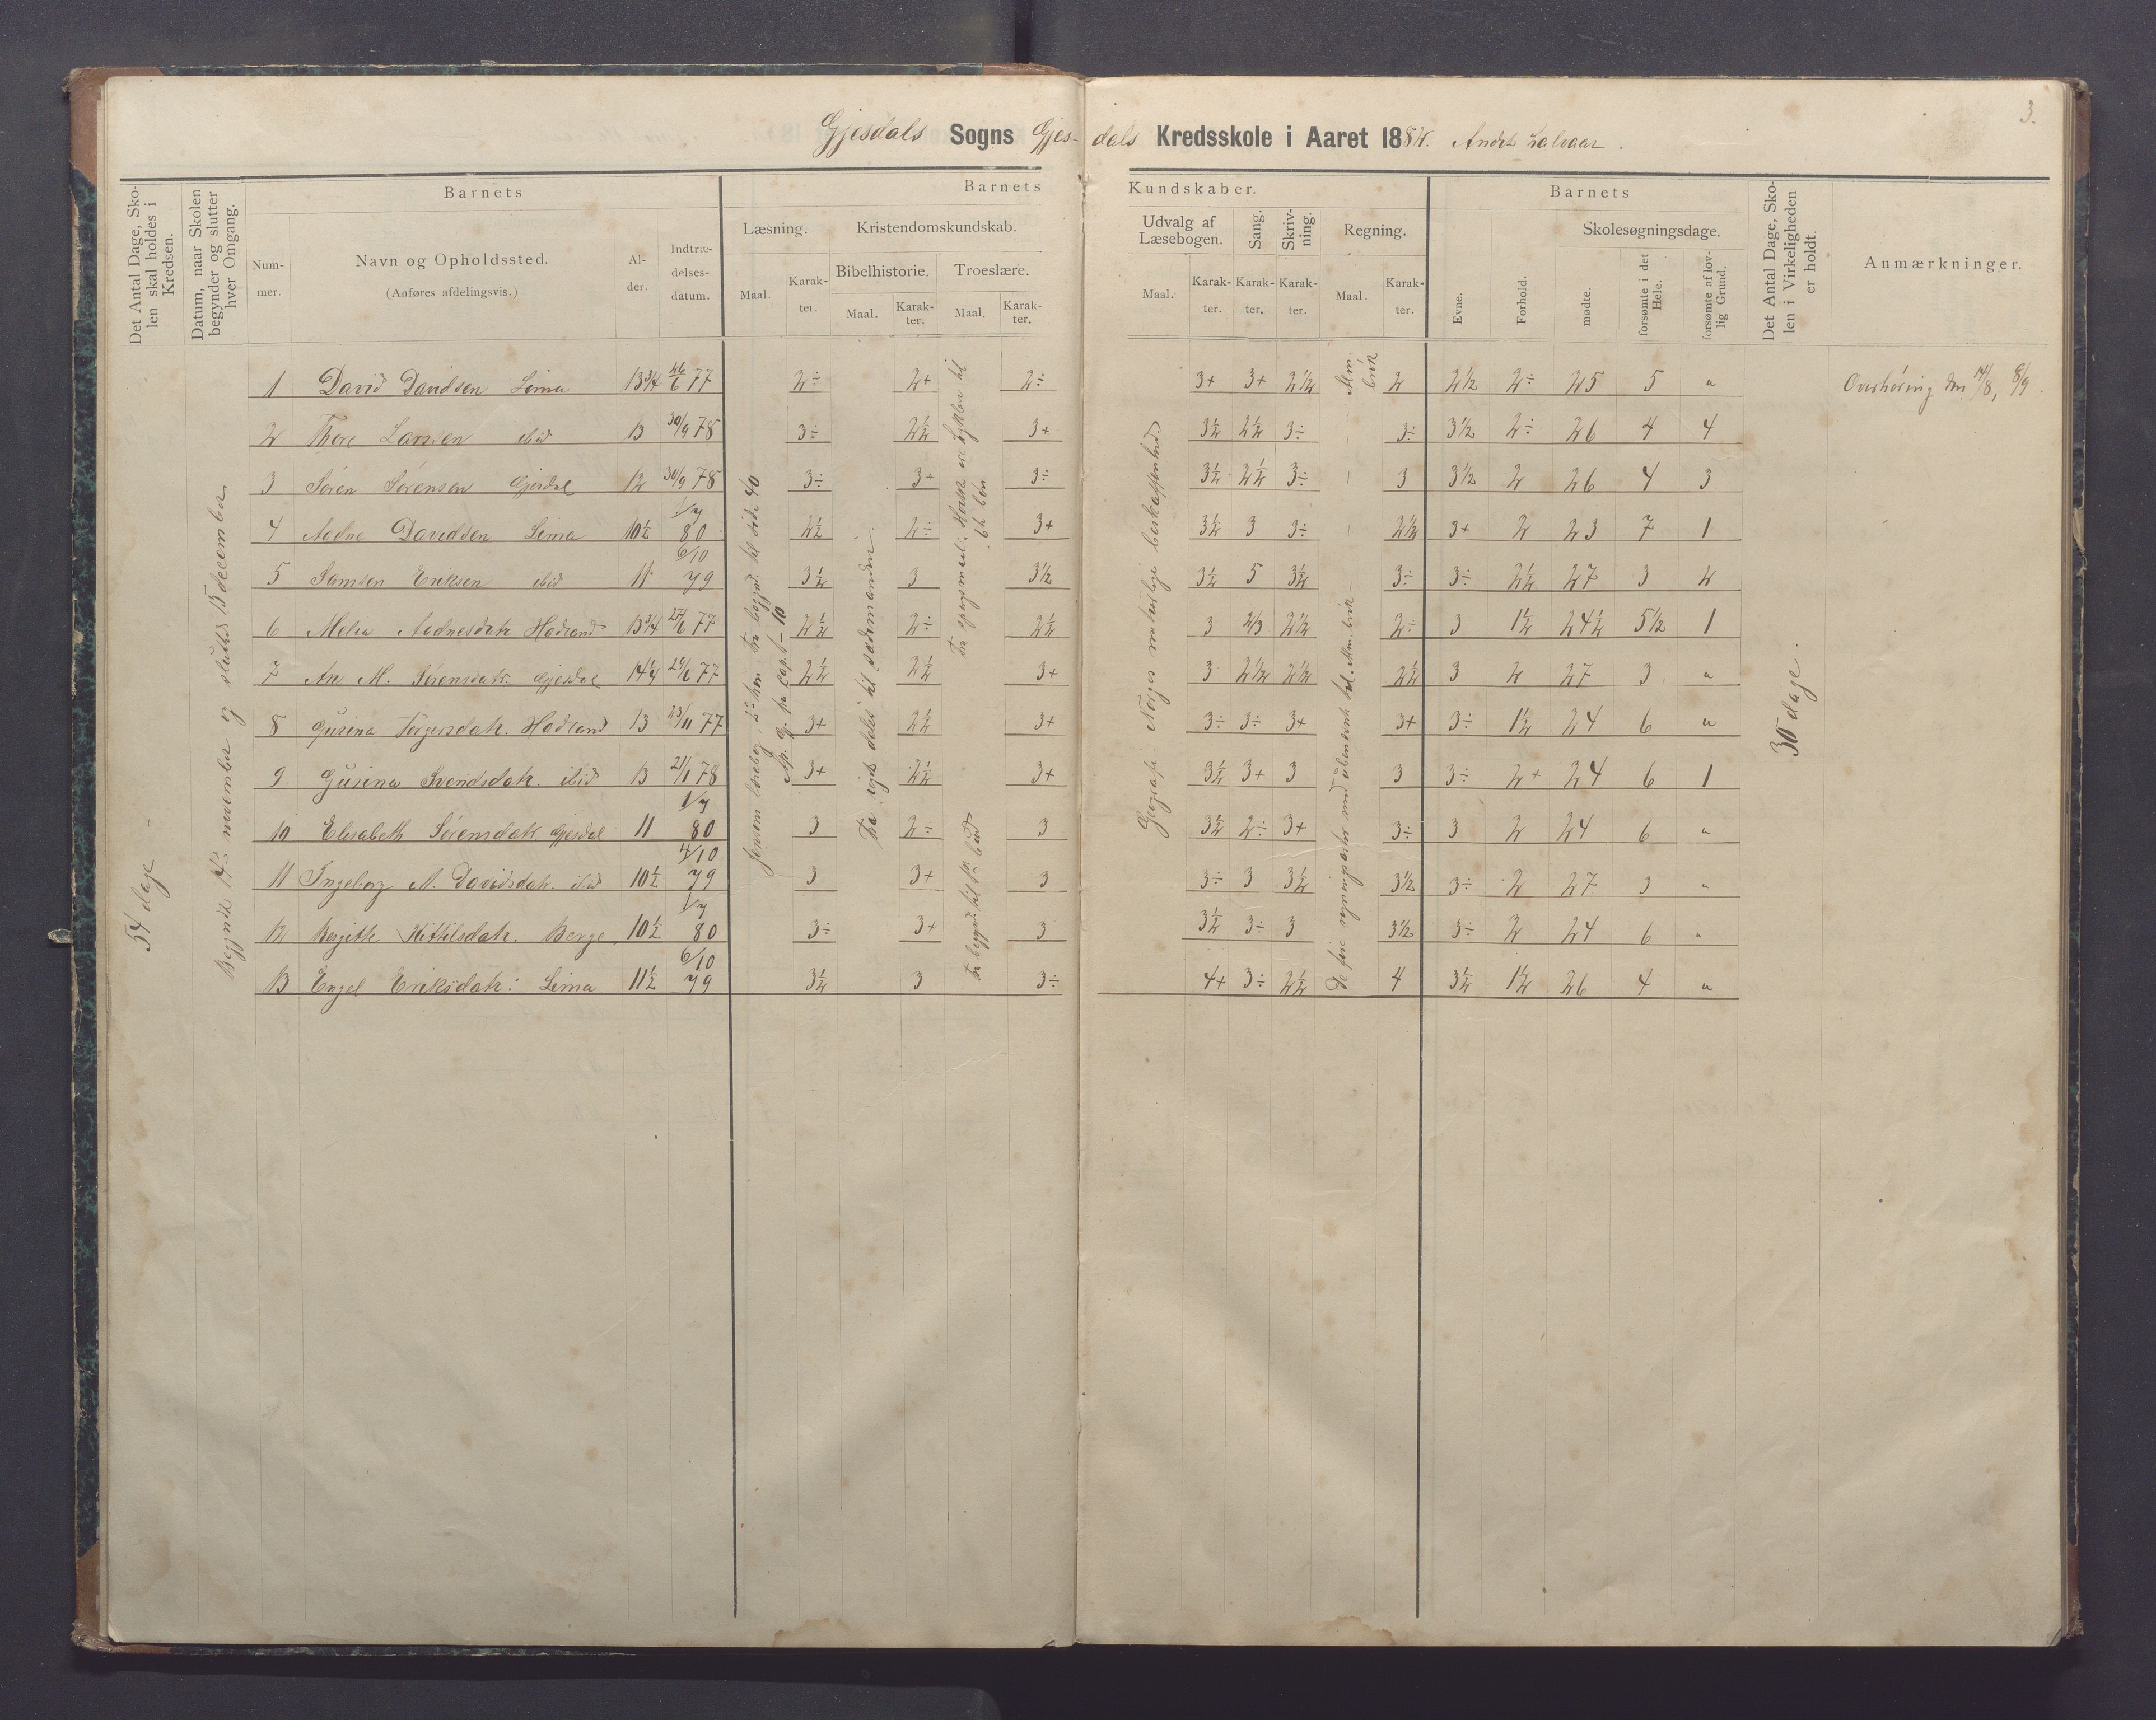 3.
Gjesdals Sogns Gjes- dals Kredsskole i Aaret 1882. Andet halvaar.
Det Antal Dage, Skolen skal holdes i Kredsen.
Datum, naar Skolen begynder og slutter hver Omgang.
Barnets
Num-mer.
Navn og Opholdssted.
(Anføres afdelingsvis.)
Al-der.
Indtræ-delses-datum.
Barnets Kundskaber.
Læsning.
Maal.
Karak-ter.
Kristendomskundskab.
Bibelhistorie.
Maal.
Karak-ter.
Troeslære.
Maal.
Karak-ter.
Udvalg af Læsebogen.
Maal.
Karak-ter.
Sang.
Karak-ter.
Skriv-ning.
Karak-ter.
Regning.
Maal.
Karak-ter.
Barnets
Evne.
Forhold.
Skolesøgningsdage.
mødte.
forsømte i det Hele.
forsømte af lov-lig Grund.
Det Antal Dage, Sko-len i Virkeligheden er holdt.
Anmærkninger.
54 dage
november og sluttes 15 december
1 David Davidsen Lima 13 3/4 26/6 77 2÷ 2+ 2÷ 3+ 3+ 2 1/2 2 2 1/2 2÷ 25 5 " Overhøring den 14/8, 8/9.
2 Thore Larsen ibid 13 30/9 78 3÷ 2 1/2 3+ 3 1/2 2 1/2 3÷ 3÷ 3 1/2 2÷ 26 4 4
3 Søren Sørensen Gjesdal 12 30/9 78 3÷ 3+ 3÷ 3 1/2 2 1/2 3÷ 3 3 1/2 2 26 4 3
4 Aadne Davidsen Lima 10 1/2 1/7 80 2 1/2 2÷ 3+ 3 1/2 3 3÷ 2 1/2 3+ 2 23 7 1
5 Samsen Eriksen ibid 11 6/10 79 3 1/2 3 3 1/2 3 1/2 5 3 1/2 3÷ 3÷ 2 1/2 27 3 2
6 Aadnesdatr Hadland 13 3/4 6 77 2 1/2 2÷ 2 1/2 3 2/3 2 1/2 2÷ 3 1 1/2 24 1/2 5 1/2 1
7 M. Sørensdatr. Gjesdal 14 1/4 77 2 1/2 2 1/2 3+ 3 2 1/2 2 1/2 2 1/2 3 2 27 3 "
8 Gurina Torgersdatr. Hadland 13 23/11 77 3+ 2 1/2 3+ 3÷ 3÷ 3+ 3+ 3÷ 1 1/2 24 6 "
9 Gurina Svendsdatr. ibid 13 21/1 78 3+ 2 1/2 3+ 3 1/2 3+ 3 3 3÷ 2+ 24 6 1
10 Elisabeth Sørensdatr Gjesdal 11 1/7 80 3 2÷ 3 3 1/2 2÷ 3+ 3÷ 3 2 24 6 "
11 Ingeborg M. Davidsdatr. ibid 10 1/2 4/10 79 3 3+ 3 3÷ 3 3 1/2 3 1/2 3÷ 2 27 3 "
12 Kittilsdatr. Berge 10 1/2 1/7 80 3÷ 3+ 3 3 1/2 3÷ 3 3 1/2 3÷ 2 24 6 "
13 Engel Eriksdatr: Lima 11 1/2 6/10 79 3 1/2 3 3÷ 4+ 3÷ 2 1/2 4 3 1/2 1 1/2 26 4 "
30 dage.